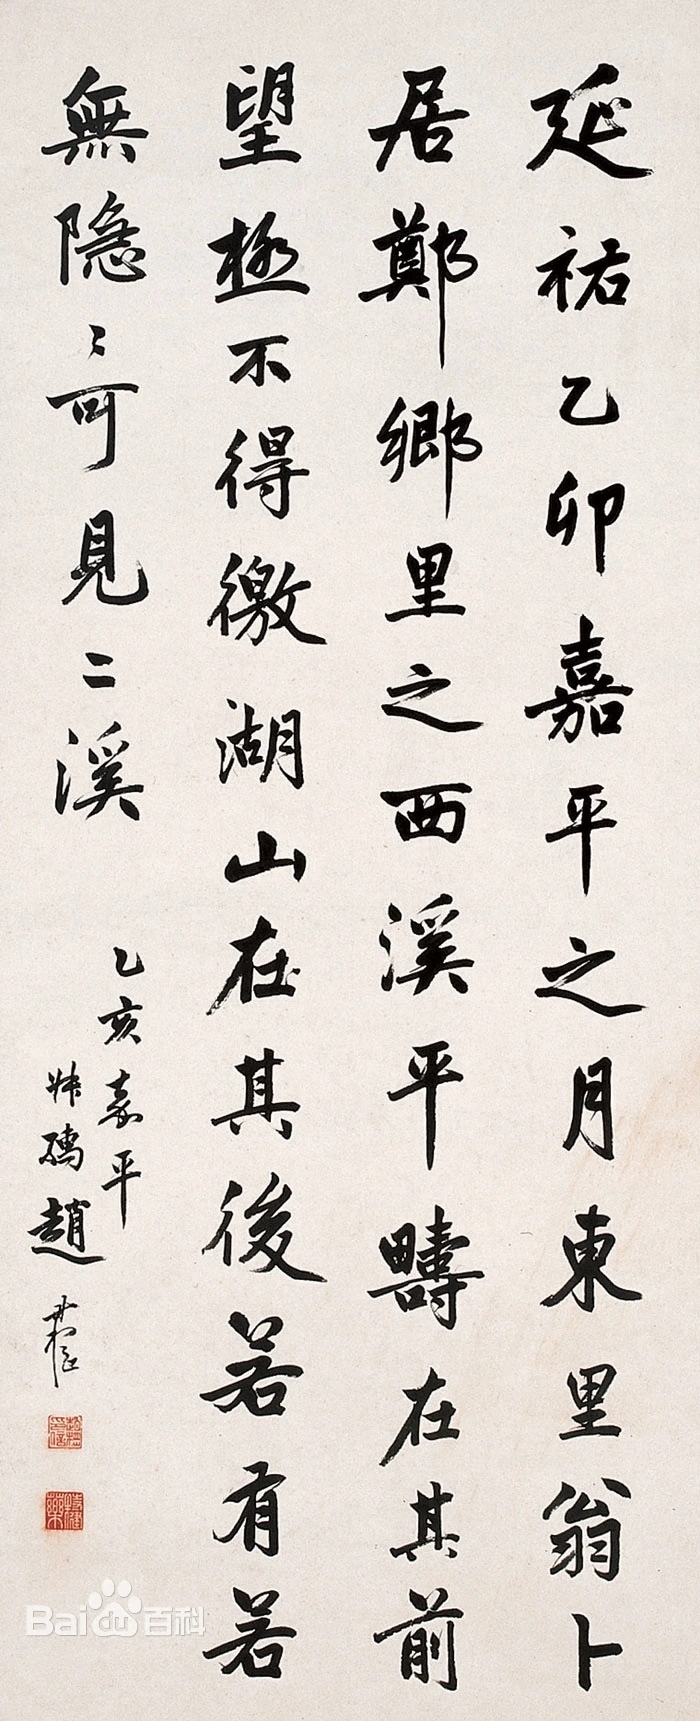 延祐乙卯嘉平之月東里翁卜
居鄭鄉里之西溪平疇在其前
望極不得徼湖山在其後若有若
無隱〻可見二溪
乙亥嘉平
趙
Baidu百科